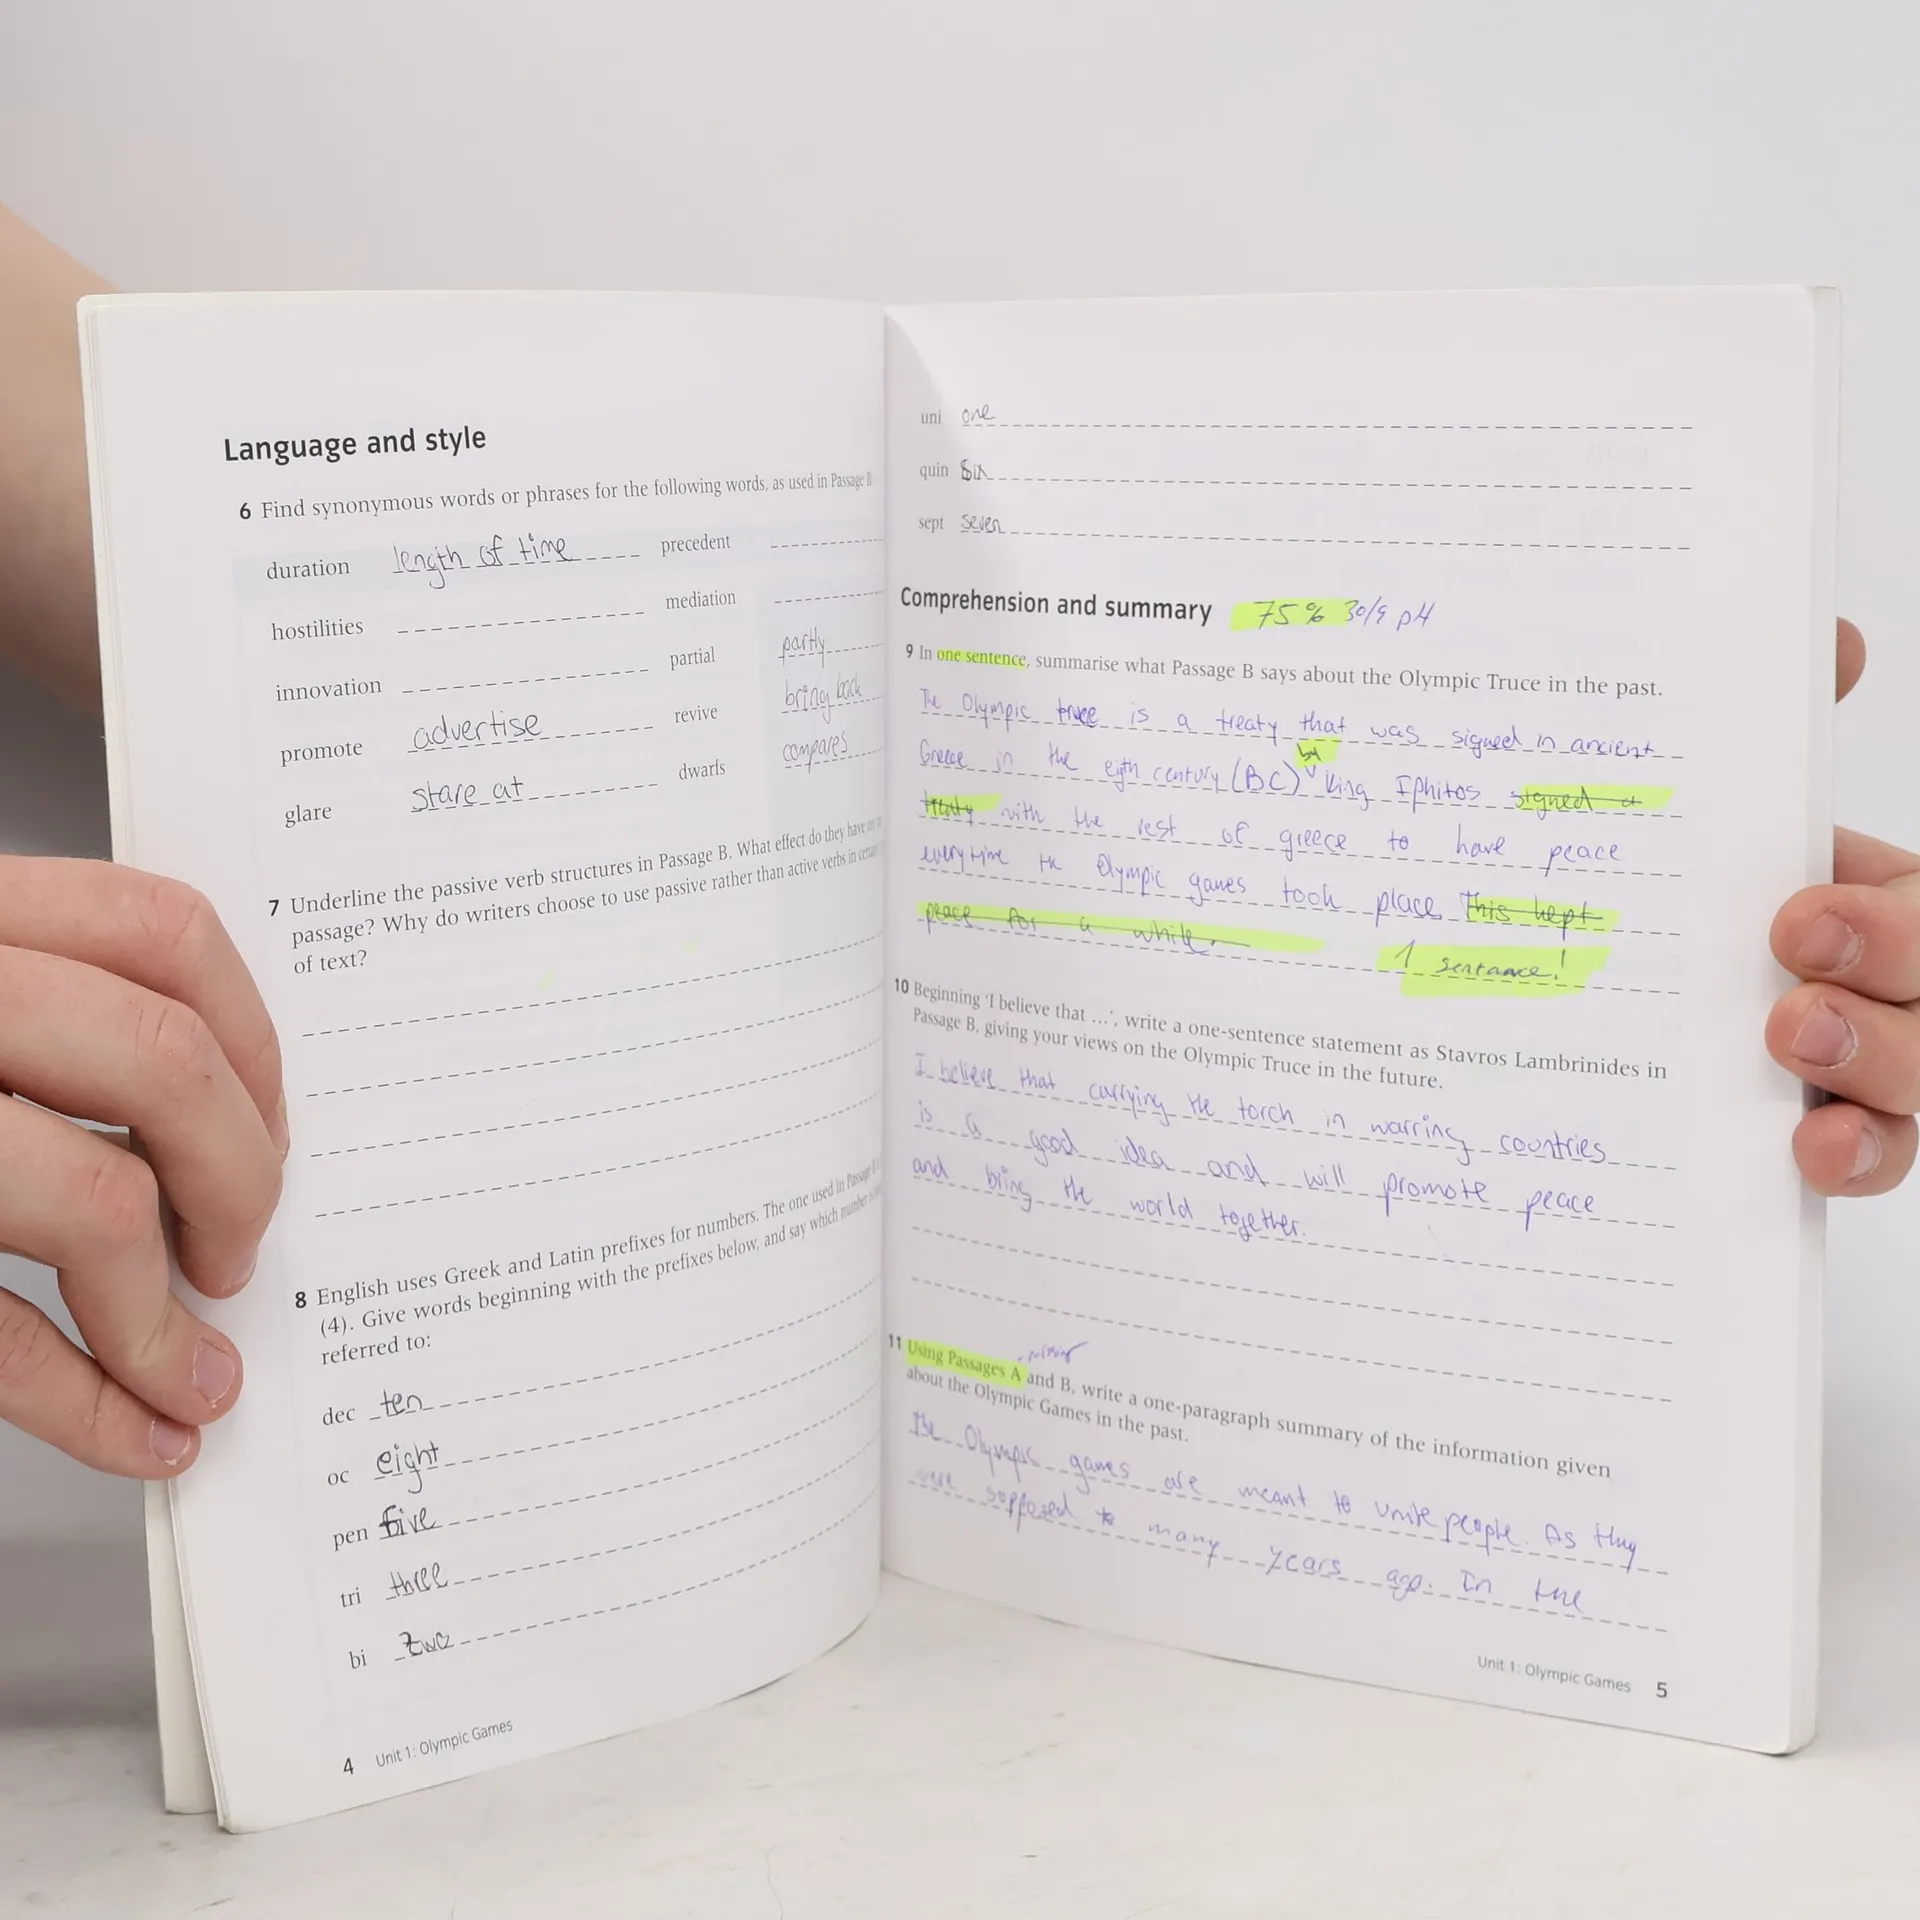 Language and style
6 Find synonymous words or phrases for the following words, as used in Passage B:
duration length of time precedent
hostilities mediation
innovation partial partly
promote advertise revive bring back
glare stare at dwarfs compares
7 Underline the passive verb structures in Passage B. What effect do they have on
passage? Why do writers choose to use passive rather than active verbs in certain
of text?
8 English uses Greek and Latin prefixes for numbers. The one used in Passage
(4). Give words beginning with the prefixes below, and say which number is
referred to:
dec ten
oc eight
pen five
tri three
bi two
4 Unit 1: Olympic Games
uni one
quin Six
sept seven
Comprehension and summary 75% 30/9 pH
9 In one sentence, summarise what Passage B says about the Olympic Truce in the past.
The Olympic truce is a treaty that was signed in ancient
Greece in the eigth century (BC) by king Iphitos signed a
treaty with the rest of greece to have peace
everytime the Olympic games took place This kept
peace for a while.
1 sentance!
10 Beginning 'I believe that ...', write a one-sentence statement as Stavros Lambrinides in
Passage B, giving your views on the Olympic Truce in the future.
I believe that carrying the torch in warring countries
is a good idea and will promote peace
and bring the world together.
missing
11 Using Passages A and B, write a one-paragraph summary of the information given
about the Olympic Games in the past.
The Olympic games are meant to unite people. As they
were sopposed to many years ago. In the
Unit 1: Olympic Games 5